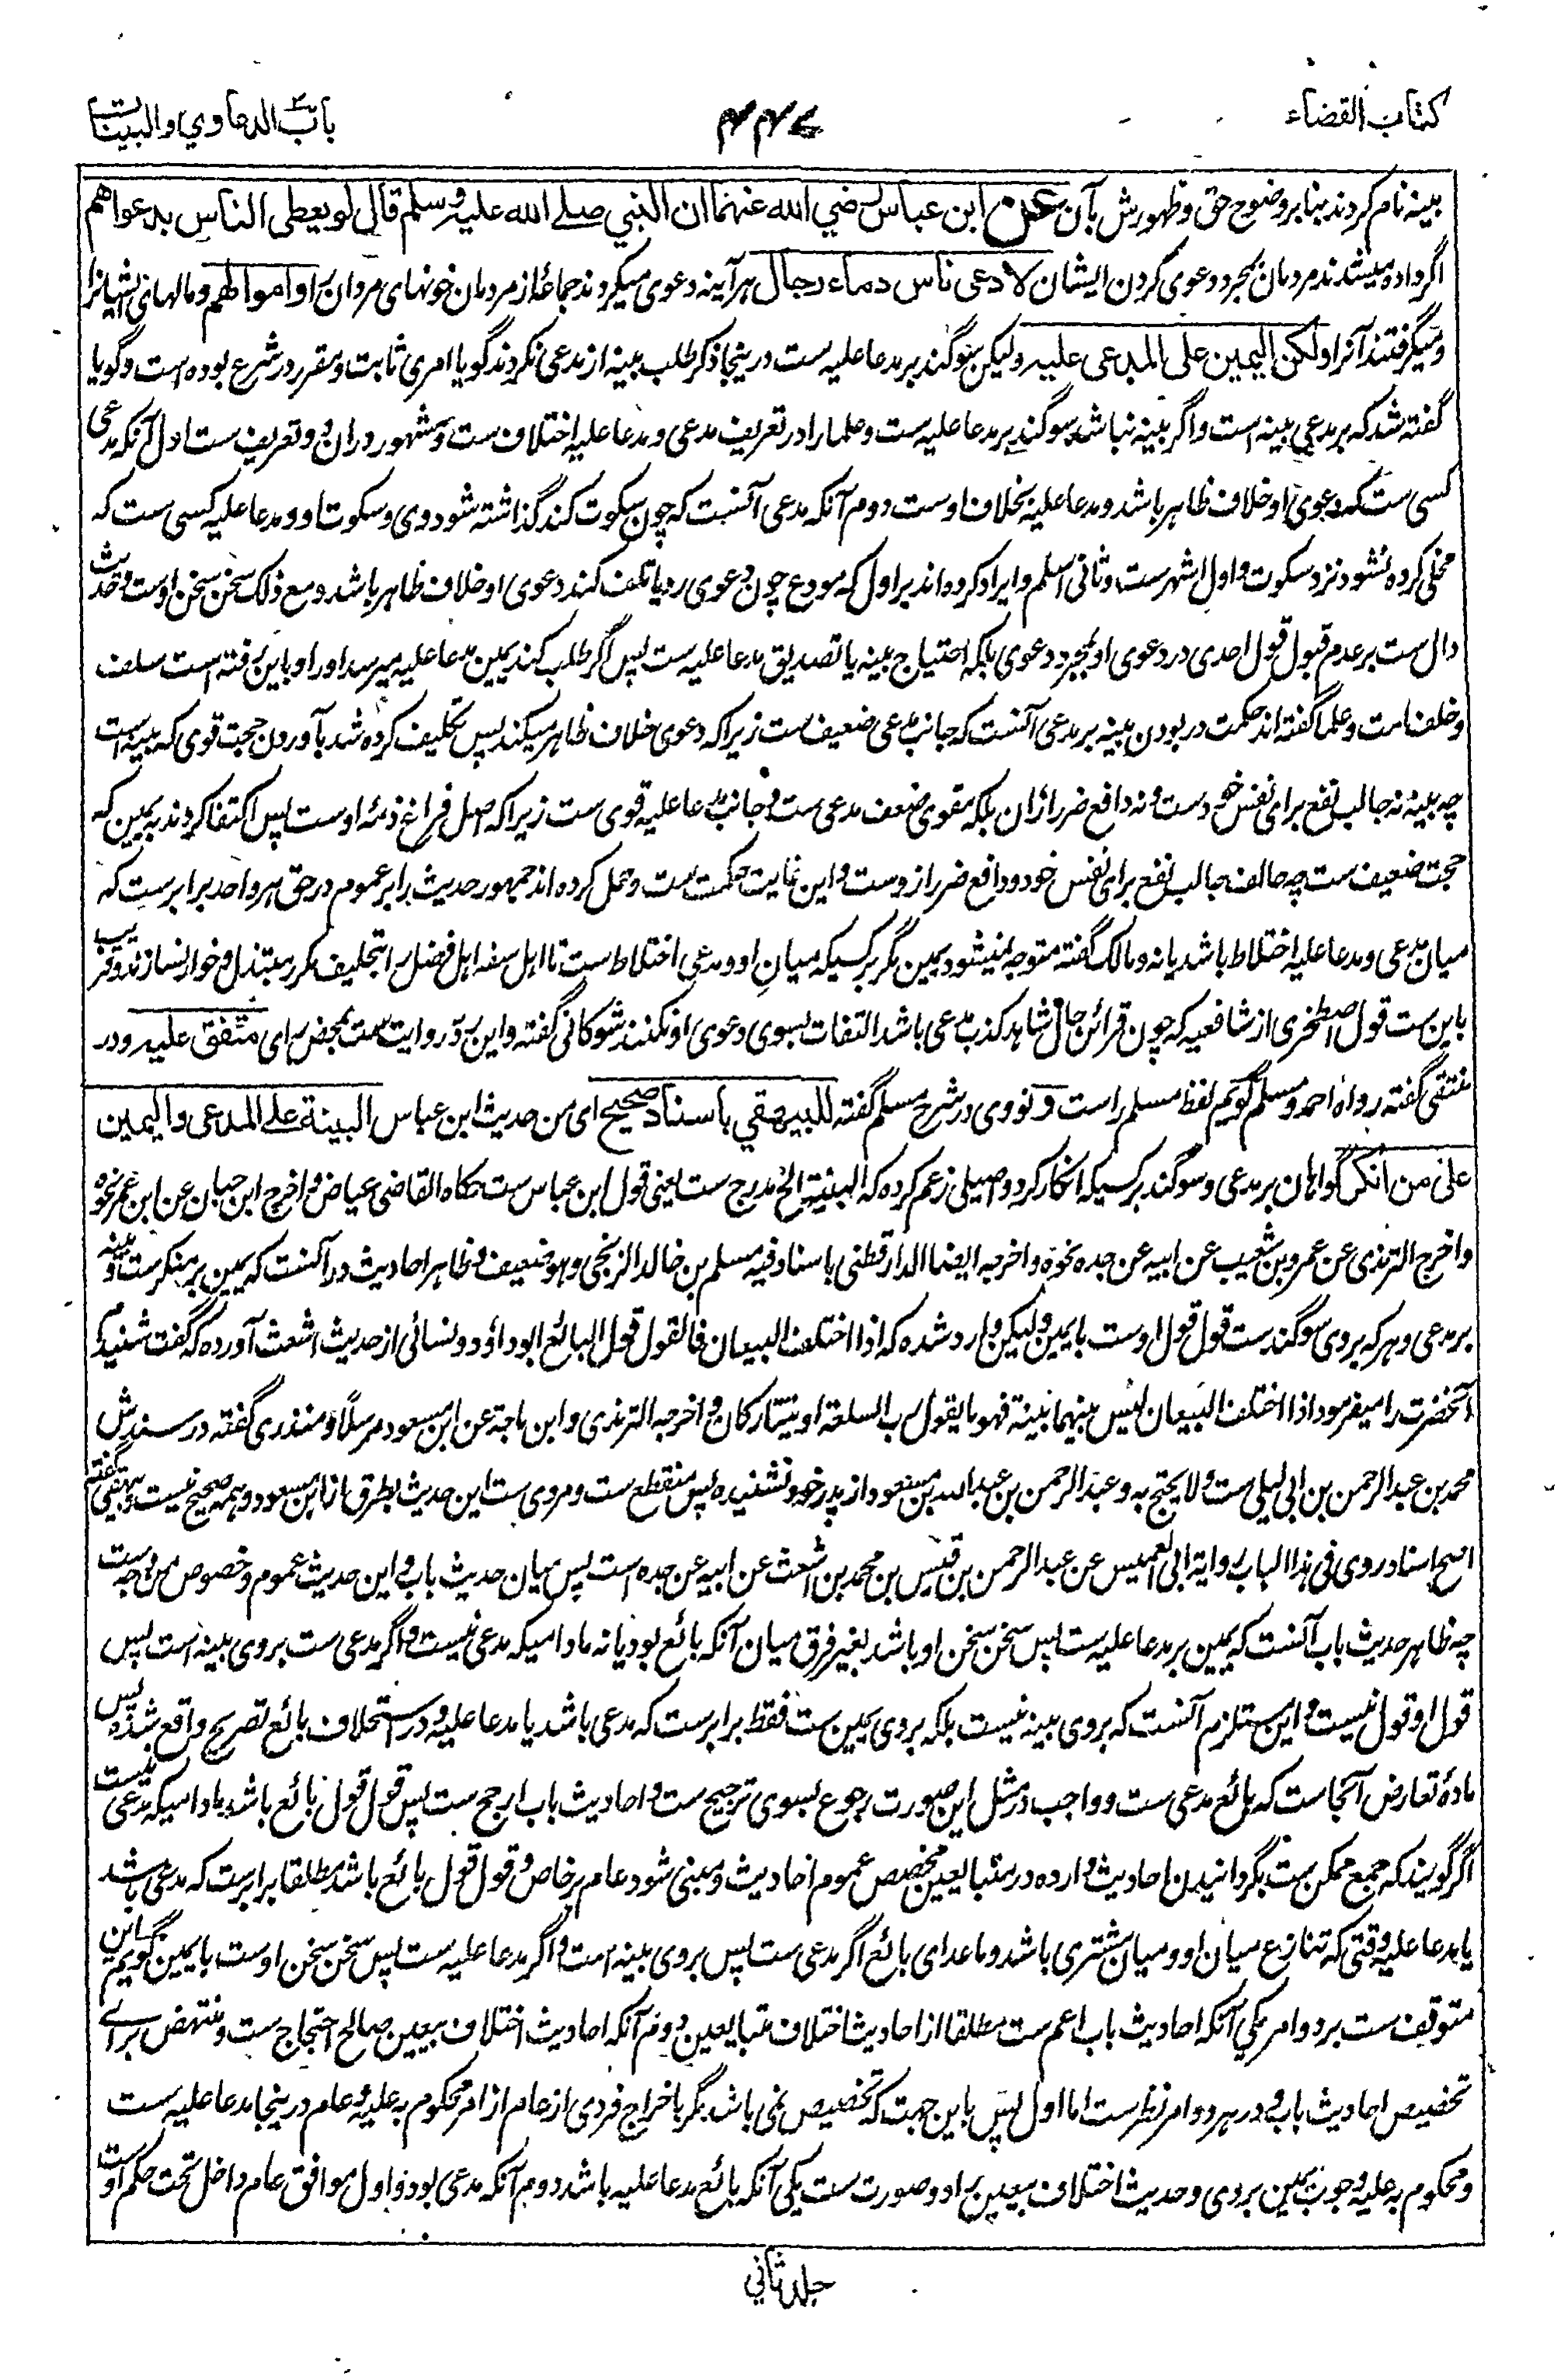 کتاب القضاء
۴۴۷
باب الدعاوي والبينات
بینه نام کردند بنا بر وضوح حق و ظهورش بآن عن ابن عباس رضي الله عنهما ان النبي صلے الله عليه وسلم قال لو يعطى الناس بدعواهم
اگر داده میشدند مردمان بمجرد دعوی کردن ایشان لادعى ناس دماء رجال هر آینه دعوی میکردند جماعهٔ از مردمان خونهای مردان را واموالهم و مالهای ایشانرا
و میگرفتند آنرا ولكن اليمين على المدعى عليه ولیکن سوگند بر مدعا علیه ست درینجا ذکر طلب بینه از مدعی نکردند گویا امری ثابت و مقرر در شرع بوده است و گویا
گفته شد که بر مدعی بینه است و اگر بینه نباشد سوگند بر مدعا علیه ست و علما را در تعریف مدعی و مدعا علیه اختلاف ست و مشهور دران دو تعریف ست اول آنکه مدعی
کسی ست که دعوی او خلاف ظاهر باشد و مدعا علیه بخلاف اوست دوم آنکه مدعی آنست که چون سکوت کند گذاشته شود وی و سکوت او و مدعا علیه کسی ست که
مخلی کرده نشود نزد سکوت و اول اشهر ست و ثانی اسلم و ایراد کرده اند بر اول که مودع چون دعوی رد یا تلف کند دعوی او خلاف ظاهر باشد و مع ذلک سخن سخن اوست و حدیث
دال ست بر عدم قبول قول احدی در دعوی او بمجرد دعوی بلکه احتیاج بینه یا تصدیق مدعا علیه ست پس اگر طلب کند یمین مدعا علیه میرسد او را و باین رفته است سلف
و خلف امت و علما گفته اند حکمت در بودن بینه بر مدعی آنست که جانب مدعی ضعیف ست زیرا که دعوی خلاف ظاهر میکند پس تکلیف کرده شد بآوردن حجت قوی که بینه است
چه بینه نه جالب نفع برای نفس خود ست و نه دافع ضرر ازان بلکه مقوی ضعف مدعی ست و جانب مدعا علیه قوی ست زیرا که اصل فراغ ذمهٔ اوست پس اکتفا کردند به یمین که
حجت ضعیف ست چه حالف جالب نفع برای نفس خود و دافع ضرر از وست و این غایت حکمت ست و حمل کرده اند جمهور حدیث را بر عموم در حق هر واحد برابر ست که
میان مدعی و مدعا علیه اختلاط باشد یا نه و مالک گفته متوجه نمیشود یمین مگر بر کسیکه میان او و مدعی اختلاط ست تا اهل سفه اهل فضل را بتحلیف مکرر مبتذل و خوار نسازند و قریب
باین ست قول اصطخری از شافعیه که چون قرائن حال شاهد کذب مدعی باشد التفات بسوی دعوی او نکنند شوکانی گفته و این رد روایت ست بمحض رای متفق عليه و در
منتقی گفته رواه احمد و مسلم گویم لفظ مسلم راست و نووی در شرح مسلم گفته للبيهقي باسناد صحيح ای من حدیث ابن عباس البينة على المدعى واليمين
على من انكر گواهان بر مدعی و سوگند بر کسیکه انکار کرد و اصیلی زعم کرده که البینة الخ مدرج ست یعنی قول ابن عباس ست حکاه القاضی عیاض و اخرج ابن حبان عن ابن عمر نحوه
و اخرج الترمذی عن عمرو بن شعیب عن ابیه عن جده نحوه و اخرجه ایضا الدارقطنی باسناد فیه مسلم بن خالد الزنجی و هو ضعیف و ظاهر احادیث در آنست که یمین بر منکر ست و بینه
بر مدعی و هر که بر وی سوگند ست قول قول اوست بایمین و لیکن وارد شده که اذا اختلف البیعان فالقول قول البائع ابو داؤد و نسائی از حدیث اشعث آورده که گفت شنیدم
آنحضرت را میفرمود اذا اختلف البیعان لیس بینهما بینة فهو ما یقول رب السلعة او یتتارکان و اخرجه الترمذی و ابن ماجة عن ابن مسعود مرسلاً و منذری گفته در سندش
محمد بن عبد الرحمن بن ابی لیلی ست و لا یحتج به و عبد الرحمن بن عبد الله بن مسعود از پدر خود نشنیده پس منقطع ست و مروی ست این حدیث بطرق از ابن مسعود و همه صحیح نیست و بیهقی گفته
اصح اسناد روی فی هذا الباب روایة ابی العمیس عن عبد الرحمن بن قیس بن محمد بن اشعث عن ابیه عن جده است پس میان حدیث باب و این حدیث عموم و خصوص من وجه ست
چه ظاهر حدیث باب آنست که یمین بر مدعا علیه ست پس سخن سخن او باشد بغیر فرق میان آنکه بائع بود یا نه مادامیکه مدعی نیست و اگر مدعی ست بر وی بینه است پس
قول او قول نیست و این مستلزم آنست که بر وی بینه نیست بلکه بر وی یمین ست فقط برابر ست که مدعی باشد یا مدعا علیه و در استحلاف بائع تصریح واقع شده پس
مادهٔ تعارض آنجاست که بائع مدعی ست و واجب در مثل این صورت رجوع بسوی ترجیح ست و احادیث باب ارجح ست پس قول قول بائع باشد مادامیکه مدعی نیست
اگر گویند که جمع ممکن ست بگردانیدن احادیث وارده در متبایعین مخصص عموم احادیث و مبنی شود عام بر خاص و قول قول بائع باشد مطلقا برابر ست که مدعی باشد
یا مدعا علیه وقتی که تنازع میان او و میان مشتری باشد و ما عدای بائع اگر مدعی ست پس بر وی بینه است و اگر مدعا علیه ست پس سخن سخن اوست بایمین گویم این
متوقف ست بر دو امر یکی آنکه احادیث باب اعم ست مطلقا از احادیث اختلاف متبایعین دوم آنکه احادیث اختلاف بیعین صالح احتجاج ست و منتهض برای
تخصیص احادیث باب و در هر دو امر نظر ست اما اول پس باین جهت که تخصیص نمی باشد مگر باخراج فردی از عام از امر محکوم به علیه و عام درینجا مدعا علیه ست
و محکوم به علیه وجوب یمین بر وی و حدیث اختلاف بیعین را دو صورت ست یکی آنکه بائع مدعا علیه باشد دوم آنکه مدعی بود و اول موافق عام داخل تحت حکم اوست
جلد ثاني